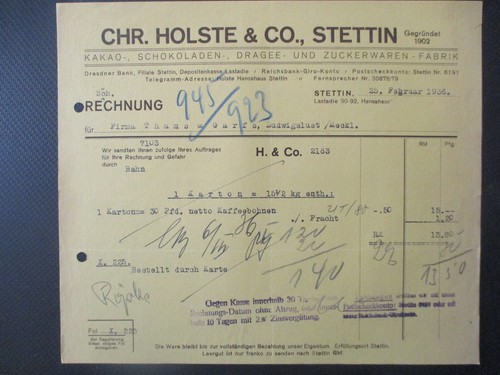 CHR. HOLSTE & CO., STETTIN Gegründet 1902
KAKAO-, SCHOKOLADEN-, DRAGEE- UND ZUCKERWAREN-FABRIK
Dresdner Bank, Filiale Stettin, Depositenkasse Lastadie / Reichsbank-Giro-Konto / Postscheckkonto: Stettin Nr. 6191
Telegramm-Adresse: Holste Hansahaus Stettin / Fernsprecher Nr.
Sch.
RECHNUNG
945/923
STETTIN, 25. Februar 1936.
Lastadie 90-92, Hansahaus
für Firma Thams & Garfs, Ludwigslust/Meckl.
7103
Wir sandten Ihnen zufolge Ihres Auftrages
für Ihre Rechnung und Gefahr
durch
H. & Co. 2163
RM Pfg.
Bahn
1 Karton = 15½ kg enth.:
1 Karton = 30 Pfd. netto Kaffeebohnen -.50 15.--
./. Fracht 1.20
RM 13.80
X. 223.
Bestellt durch Karte
140
13 50
Gegen Kasse innerhalb 30
Rechnungs-Datum ohne Abzug,
10 Tagen mit 2% Zinsvergütung.
Fol X. 223
Bei Regulierung
dieses Folium mit
aufgeben.
Die Ware bleibt bis zur vollständigen Bezahlung unser Eigentum. Erfüllungsort Stettin.
Leergut ist nur franko zu senden nach Stettin Gbf.